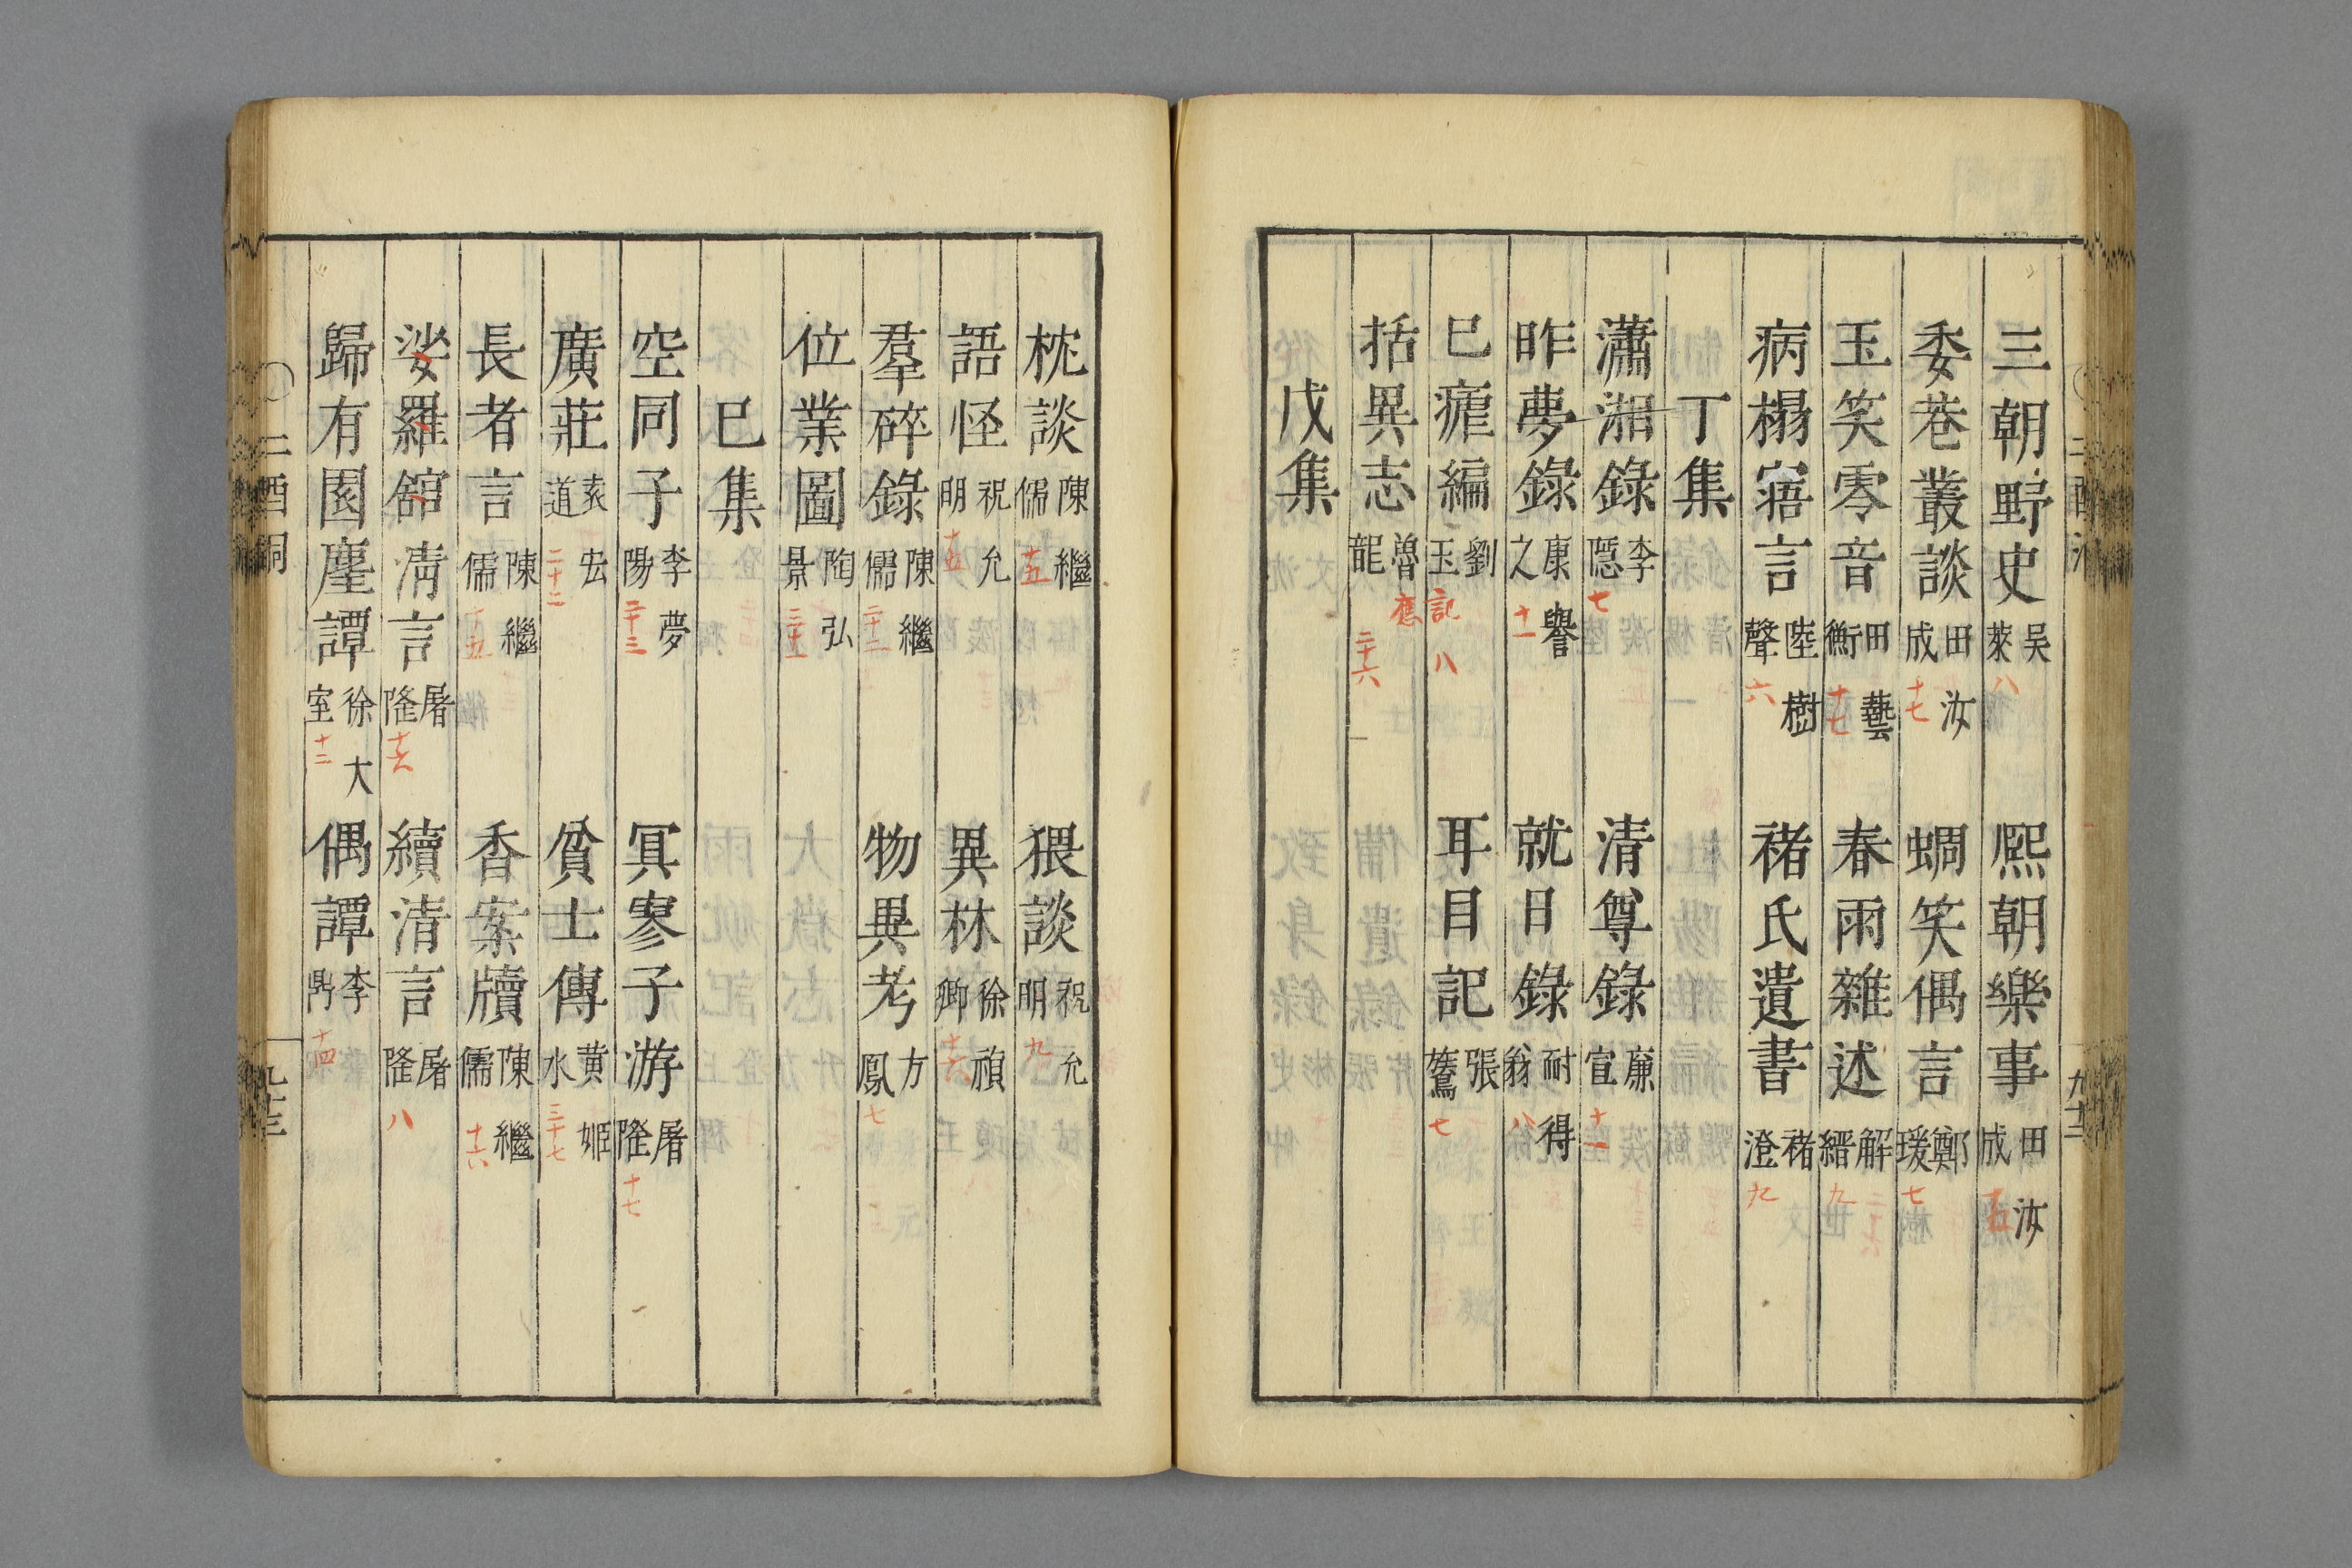 三朝野史 吳萊 八 熙朝樂事 田汝成 十五
委巷叢談 田汝成 十七 蜩笑偶言 鄭瑗 七
玉笑零音 田藝衡 十七 春雨雜述 解縉 九
病榻寤言 陸樹聲 六 褚氏遺書 褚澄 九
丁集
瀟湘錄 李隱 七 清尊錄 廉宣 十一
昨夢錄 康譽之 十一 就日錄 耐得翁 八
巳瘧編 劉玉記 八 耳目記 張鷟 七
括異志 魯應龍 二十六
戊集
枕談 陳繼儒 十五 猥談 祝允明 九
語怪 祝允明 十五 異林 徐禎卿 十六
羣碎錄 陳繼儒 二十二 物異考 方鳳 七
位業圖 陶弘景 二十一
巳集
空同子 李夢陽 二十三 冥寥子游 屠隆 十七
廣莊 袁宏道 二十二 貧士傳 黃姬水 三十七
長者言 陳繼儒 十五 香案牘 陳繼儒 十六
娑羅舘清言 屠隆 十六 續清言 屠隆 八
歸有園麈譚 徐大室 十二 偶譚 李鼎 十四
二酉洞
九十三